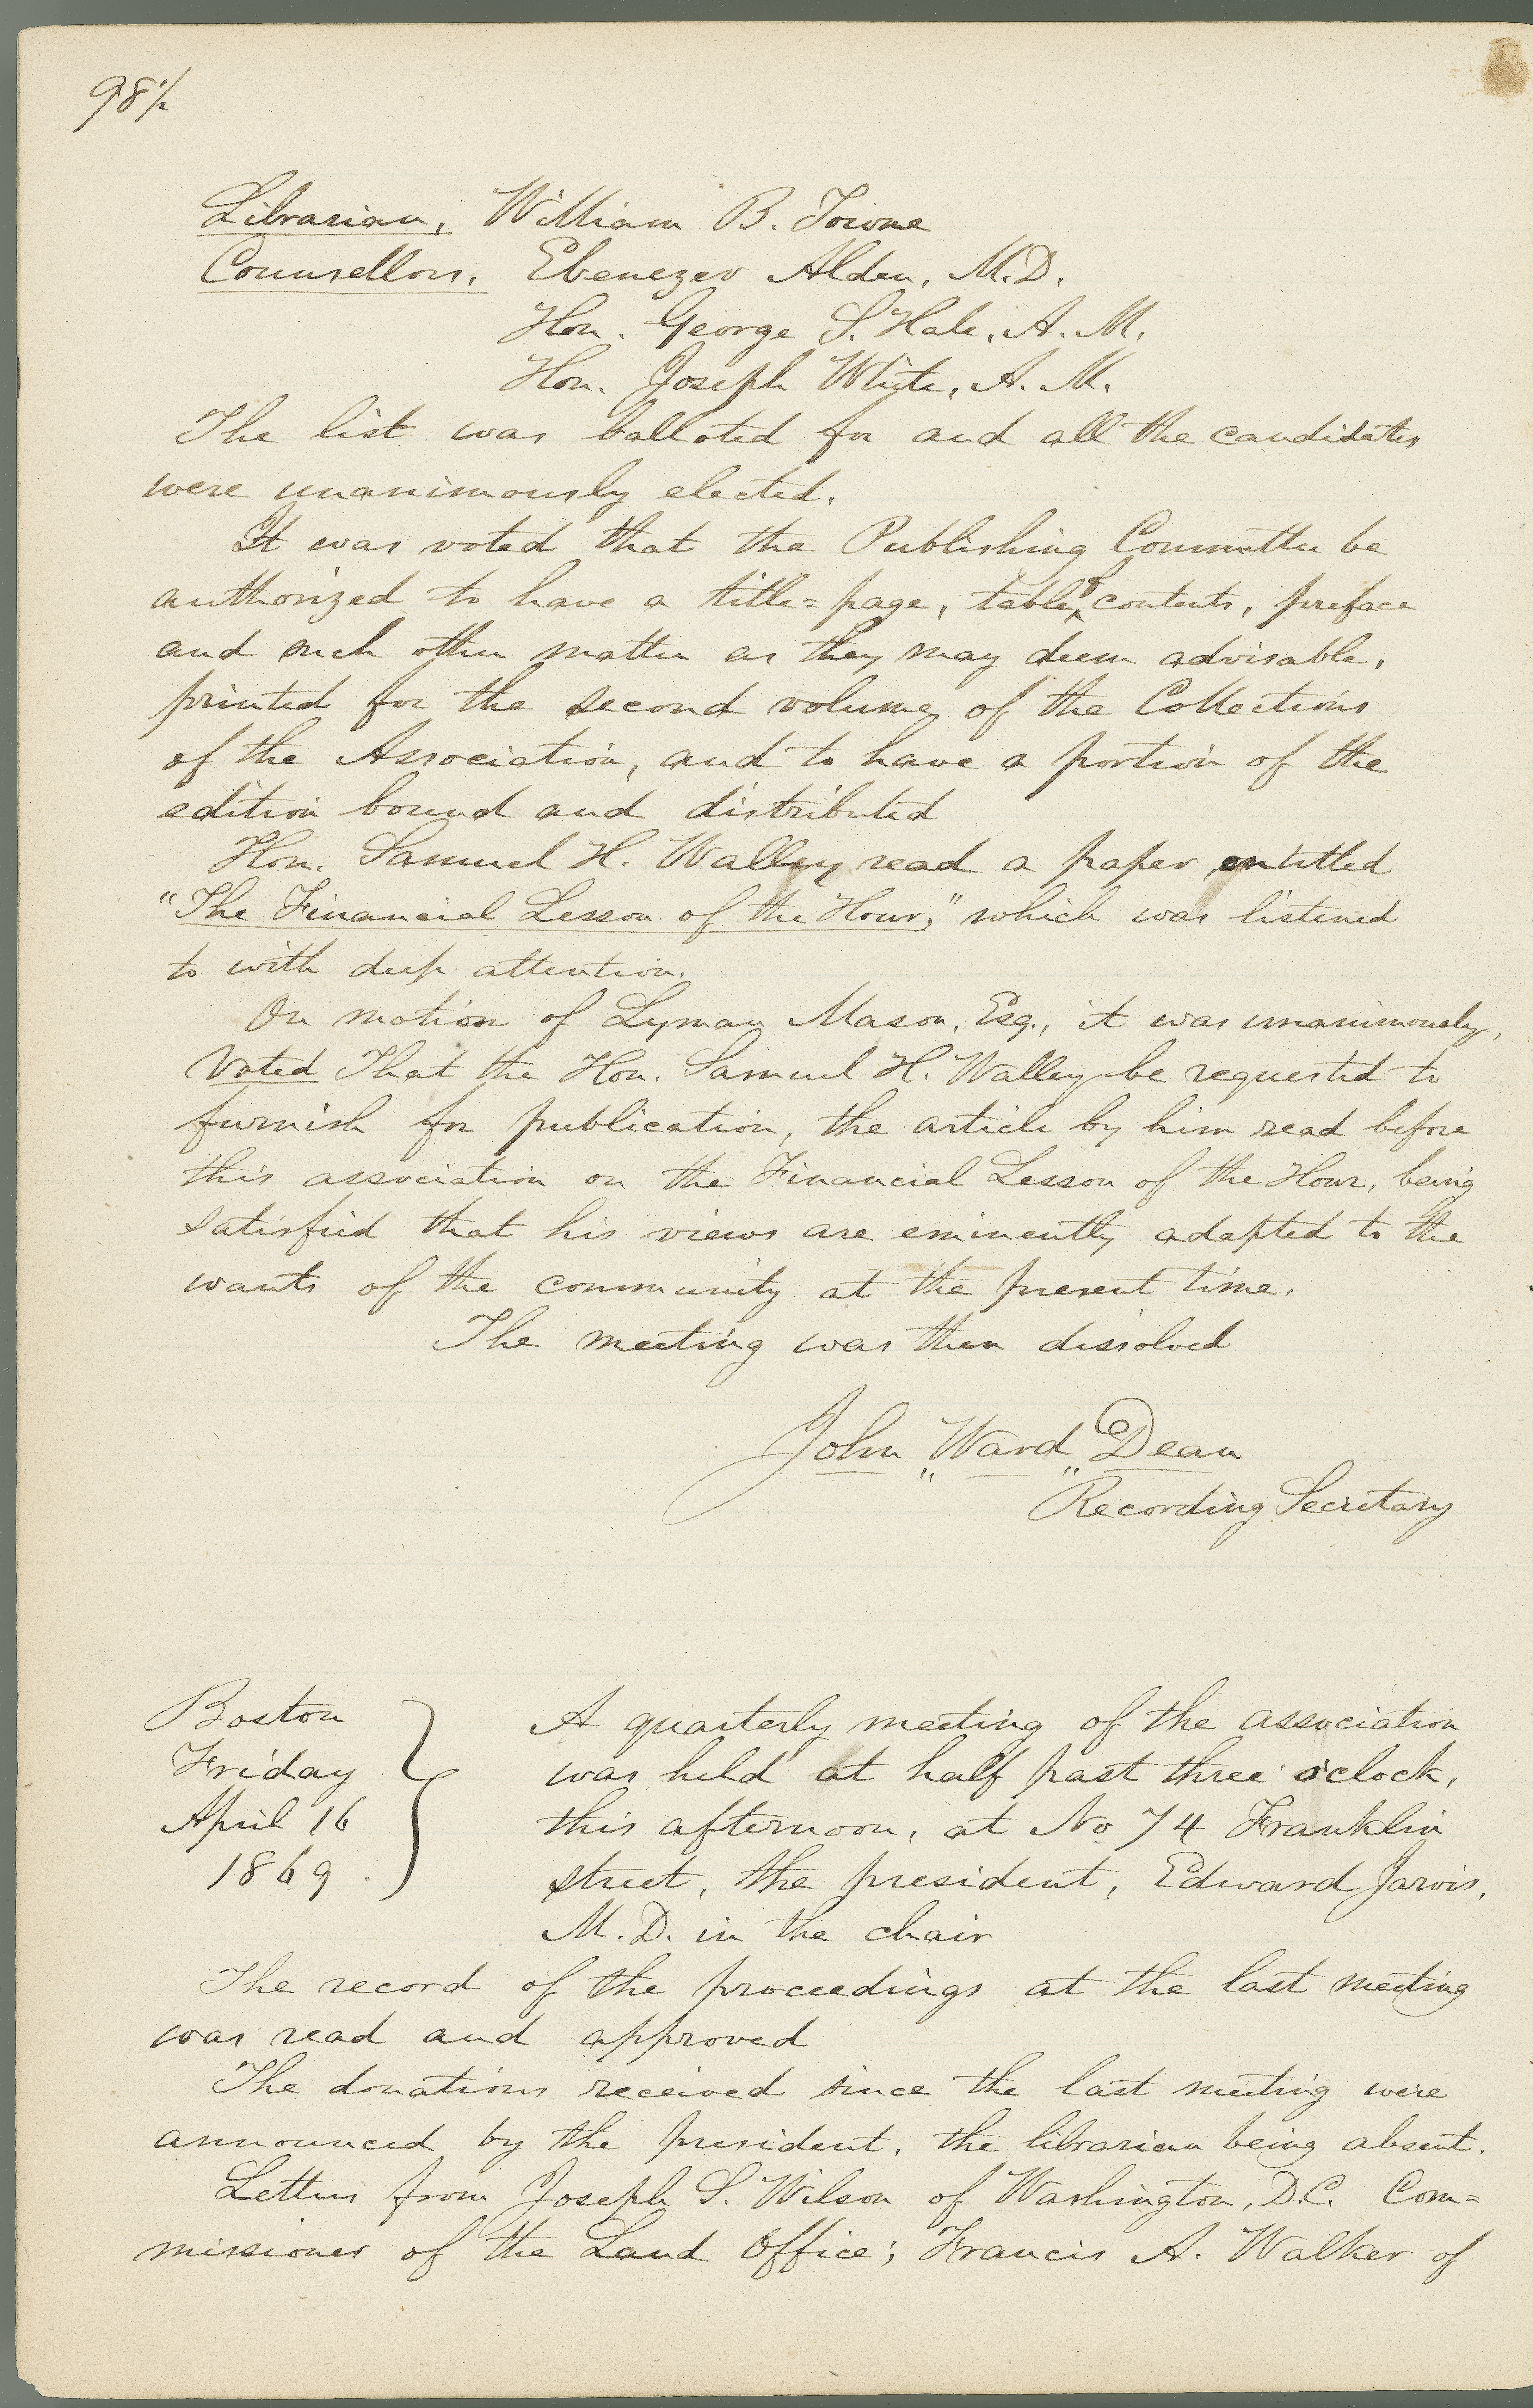 98½
Librarian, William B. Towne
Counsellors, Ebenezer Alden, M.D.
Hon. George S. Hale, A. M.
Hon. Joseph White, A. M.
The list was balloted for and all the candidates
were unanimously elected.
It was voted that the Publishing Committee be
authorized to have a title=page, table of contents, preface
and such other matter as they may deem advisable,
printed for the second volume of the Collections
of the Association, and to have a portion of the
edition bound and distributed
Hon. Samuel H. Walley read a paper entitled
"The Financial Lesson of the Hour," which was listened
to with deep attention.
On motion of Lyman Mason, Esq., it was unanimously,
Voted That the Hon. Samuel H. Walley be requested to
furnish for publication, the article by him read before
this association on the Financial Lesson of the Hour, being
satisfied that his views are eminently adapted to the
wants of the community at the present time.
The meeting was then dissolved
John Ward Dean
Recording Secretary
Boston
Friday
April 16
1869
A quarterly meeting of the association
was held at half past three o'clock,
this afternoon, at No 74 Franklin
street, the president, Edward Jarvis,
M. D. in the chair
The record of the proceedings at the last meeting
was read and approved
The donations received since the last meeting were
announced by the president, the librarian being absent.
Letters from Joseph S. Wilson of Washington, D.C. Com=
missioner of the Land Office; Francis A. Walker of